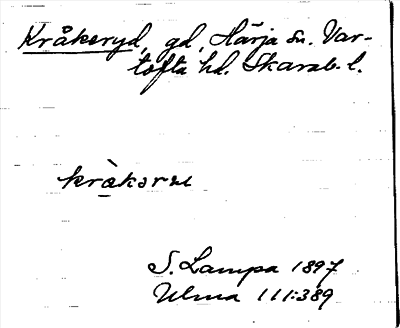 Kråkeryd, gd, Härja sn. Var-
tofta hd. Skarab. l.
S. Lampa 1897
Ulma 111:389